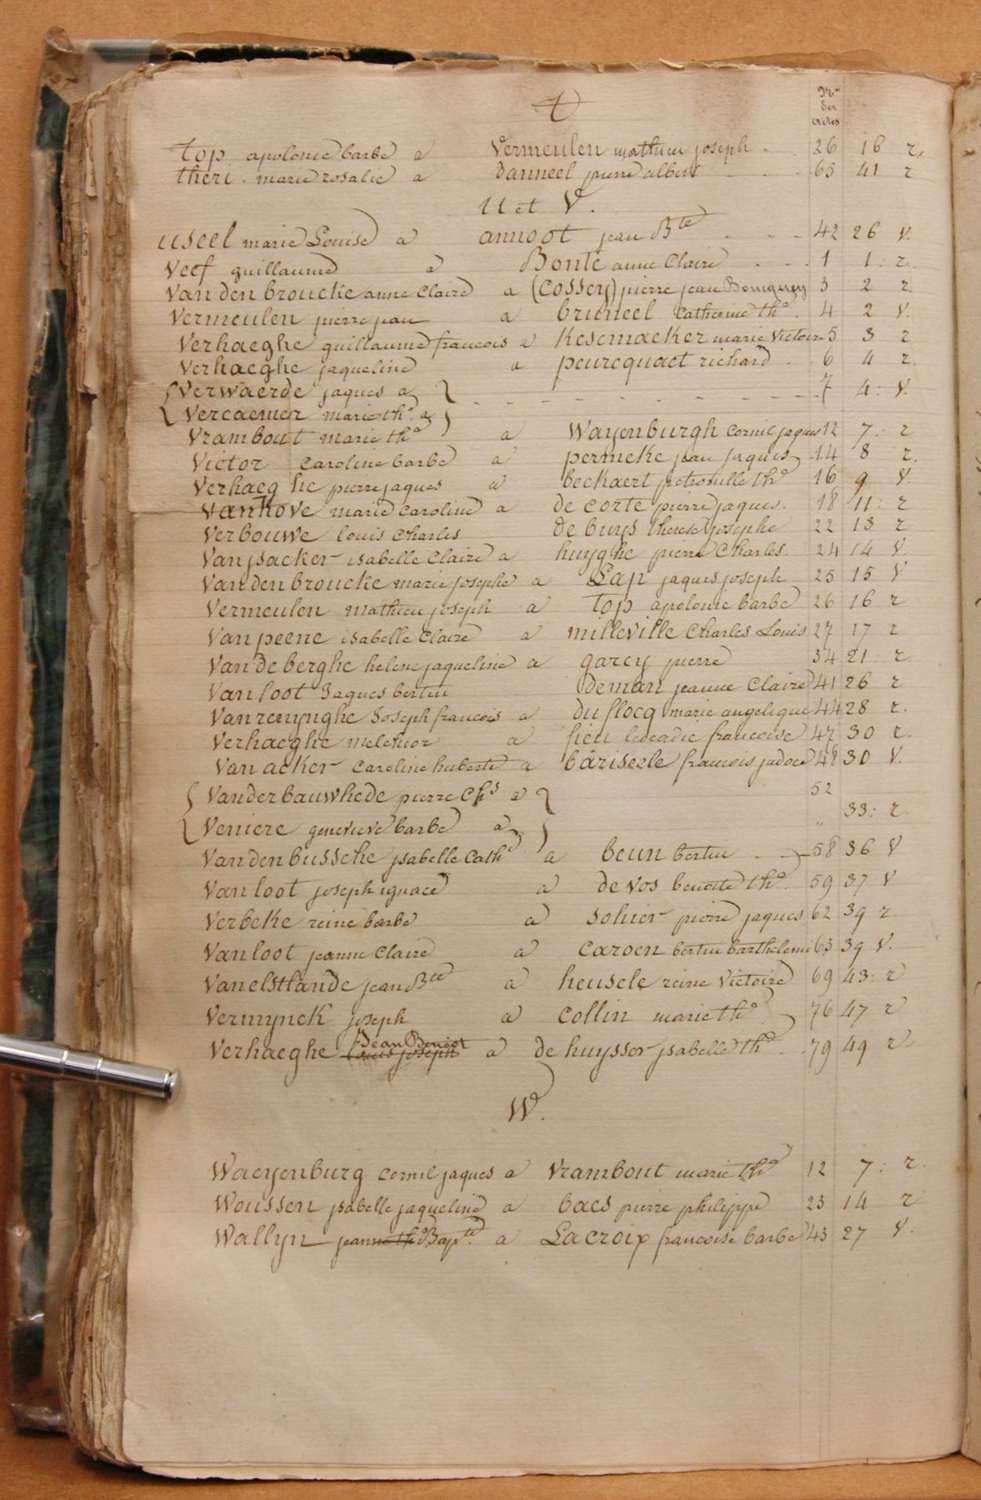 t
Nos des actes
top apolonie barbe a Vermeulen mathieu joseph 26 16 r
theri marie rosalie a danneel pierre albert 65 41 r
U et V.
useel marie Louise a annoot jean Bte 42 26 V.
Veef guillaume a Bonte anne Claire 1 1 r.
Van den broucke anne Claire a (Cossey) pierre jean 3 2 r
Vermeulen pierre jean a bruneel Catherine the 4 2 V.
Verhaeghe guillaume francois a Kesemaeker marie Victoire 5 3 r
Verhaeghe jaqueline a peurequaet richard 6 4 r.
{ Verwaerde jaques a } 7 4 V.
{ Vercaemer marie the a }
Vrambout marie the a Wayenburgh Cornil jaques 12 7 r
Victor Caroline barbe a permeke jean jaques 14 8 r.
Verhaeghe pierre jaques a beckaert petronille the 16 9 V
Vanhove marie Caroline a de Corte pierre jaques. 18 11 r
Verbouwe louis Charles de buys therese josephe 22 13 r
Vanysacker isabelle Claire a huyghe pierre Charles. 24 14 V.
Vandenbroucke marie josephe a Lap jaques joseph 25 15 V
Vermeulen mathieu joseph a top apolonie barbe 26 16 r
Vanpeene isabelle Claire a milleville Charles Louis 27 17 r
Vandeberghe helene jaqueline a garcy pierre 34 21 r
Vanloot Jaques bertin deman jeanne Claire 41 26 r
Vanremynghe Joseph francois a duflocq marie angelique 44 28 r.
Verhaeghe melchior a lieu leocadie francoise 47 30 r.
Vanacker Caroline huberte a bariseele francois judoce 48 30 V.
{ Vanderbauwhede pierre Chs a } 52
33 r
{ Veniere genevieve barbe a }
Vandenbussche ysabelle Cathe a beun bertin 58 36 V
Vanloot joseph ignace a de vos benoite the 59 37 V
Verbeke reine barbe a sohier pierre jaques 62 39 r
Vanloot jeanne Claire a Caroen bertin barthelemi 63 39 V.
Vanelstlande jean Bte a heusele reine Victoire 69 43 r
Vermynck joseph a Collin marie the 76 47 r
Verhaeghe Jean Benoot louis joseph a de huysser ysabelle the 79 49 r
W.
Waeyenburg Cornil jaques a Vrambout marie the 12 7 r
Woussen ysabelle jaqueline a baes pierre philippe 23 14 r
Wallyn jeanne the Bapte. a Lacroix francoise barbe 43 27 V.